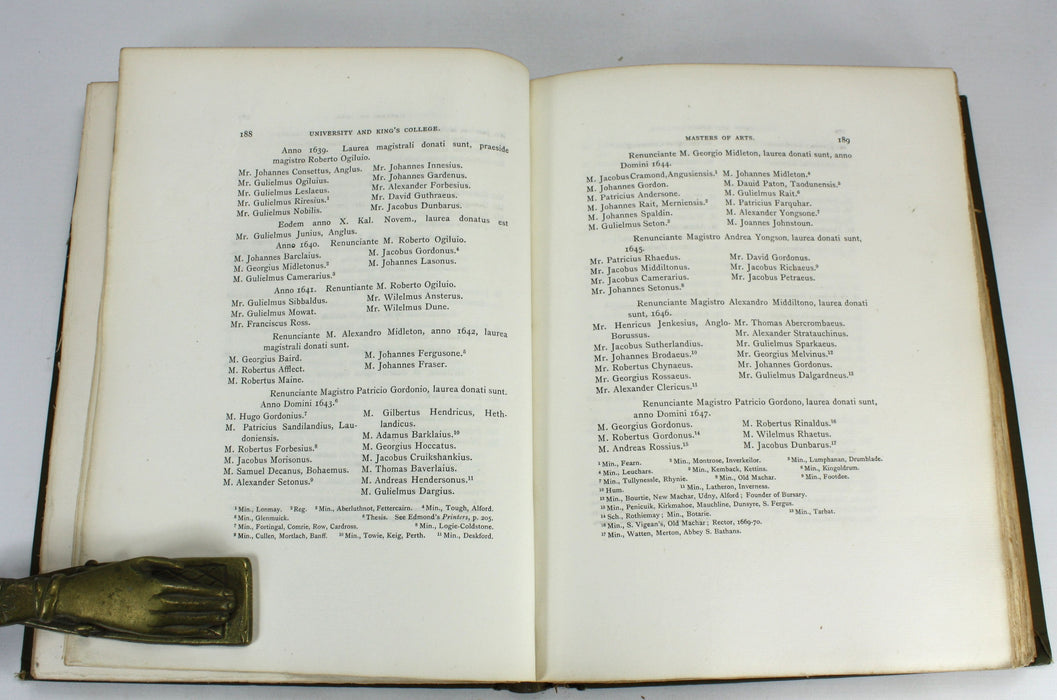 188 UNIVERSITY AND KING'S COLLEGE.
Anno 1639. Laurea magistrali donati sunt, praeside
magistro Roberto Ogiluio.
Mr. Johannes Consettus, Anglus.
Mr. Gulielmus Ogiluius.
Mr. Gulielmus Leslaeus.
Mr. Gulielmus Riresius.¹
Mr. Gulielmus Nobilis.
Mr. Johannes Innesius.
Mr. Johannes Gardenus.
Mr. Alexander Forbesius.
Mr. David Guthraeus.
Mr. Jacobus Dunbarus.
Eodem anno X. Kal. Novem., laurea donatus est
Mr. Gulielmus Junius, Anglus.
Anno 1640. Renunciante M. Roberto Ogiluio.
M. Johannes Barclaius.
M. Georgius Midletonus.²
M. Gulielmus Camerarius.³
M. Jacobus Gordonus.⁴
M. Johannes Lasonus.
Anno 1641. Renuntiante M. Roberto Ogiluio.
Mr. Gulielmus Sibbaldus.
Mr. Gulielmus Mowat.
Mr. Franciscus Ross.
Mr. Wilelmus Ansterus.
Mr. Wilelmus Dune.
Renunciante M. Alexandro Midleton, anno 1642, laurea
magistrali donati sunt.
M. Georgius Baird.
M. Robertus Afflect.
M. Robertus Maine.
M. Johannes Fergusone.⁵
M. Johannes Fraser.
Renunciante Magistro Patricio Gordonio, laurea donati sunt.
Anno Domini 1643.⁶
M. Hugo Gordonius.⁷
M. Patricius Sandilandius, Lau-
doniensis.
M. Robertus Forbesius.⁸
M. Jacobus Morisonus.
M. Samuel Decanus, Bohaemus.
M. Alexander Setonus.⁹
M. Gilbertus Hendricus, Heth-
landicus.
M. Adamus Barklaius.¹⁰
M. Georgius Hoccatus.
M. Jacobus Cruikshankius.
M. Thomas Baverlaius.
M. Andreas Hendersonus.¹¹
M. Gulielmus Dargius.
¹ Min., Lonmay. ² Reg. ³ Min., Aberluthnot, Fettercairn. ⁴ Min., Tough, Alford.
⁵ Min., Glenmuick. ⁶ Thesis. See Edmond's Printers, p. 205.
⁷ Min., Fortingal, Comrie, Row, Cardross. ⁸ Min., Logie-Coldstone.
⁹ Min., Cullen, Mortlach, Banff. ¹⁰ Min., Towie, Keig, Perth. ¹¹ Min., Deskford.
MASTERS OF ARTS. 189
Renunciante M. Georgio Midleton, laurea donati sunt, anno
Domini 1644.
M. Jacobus Cramond, Angusiensis.¹
M. Johannes Gordon.
M. Patricius Andersone.
M. Johannes Rait, Merniensis.²
M. Johannes Spaldin.
M. Gulielmus Seton.³
M. Johannes Midleton.⁴
M. Dauid Paton, Taodunensis.⁵
M. Gulielmus Rait.⁶
M. Patricius Farquhar.
M. Alexander Yongsone.⁷
M. Joannes Johnstoun.
Renunciante Magistro Andrea Yongson, laurea donati sunt,
1645.
Mr. Patricius Rhaedus.
Mr. Jacobus Middiltonus.
Mr. Jacobus Camerarius.
Mr. Johannes Setonus.⁸
Mr. David Gordonus.
Mr. Jacobus Richaeus.⁹
Mr. Jacobus Petraeus.
Renunciante Magistro Alexandro Middiltono, laurea donati
sunt, 1646.
Mr. Henricus Jenkesius, Anglo-
Borussus.
Mr. Jacobus Sutherlandius.
Mr. Johannes Brodaeus.¹⁰
Mr. Robertus Chynaeus.
Mr. Georgius Rossaeus.
Mr. Alexander Clericus.¹¹
Mr. Thomas Abercrombaeus.
Mr. Alexander Stratauchinus.
Mr. Gulielmus Sparkaeus.
Mr. Georgius Melvinus.¹²
Mr. Johannes Gordonus.
Mr. Gulielmus Dalgardneus.¹³
Renunciante Magistro Patricio Gordono, laurea donati sunt,
anno Domini 1647.
M. Georgius Gordonus.
M. Robertus Gordonus.¹⁴
M. Andreas Rossius.¹⁵
M. Robertus Rinaldus.¹⁶
M. Wilelmus Rhaetus.
M. Jacobus Dunbarus.¹⁷
¹ Min., Fearn. ² Min., Montrose, Inverkeilor. ³ Min., Lumphanan, Drumblade.
⁴ Min., Leuchars. ⁵ Min., Kemback, Kettins. ⁶ Min., Kingoldrum.
⁷ Min., Tullynessle, Rhynie. ⁸ Min., Old Machar. ⁹ Min., Footdee.
¹⁰ Hum. ¹¹ Min., Latheron, Inverness.
¹² Min., Bourtie, New Machar, Udny, Alford; Founder of Bursary.
¹³ Min., Penicuik, Kirkmahoe, Mauchline, Dunsyre, S. Fergus.
¹⁴ Sch., Rothiemay; Min., Botarie. ¹⁵ Min., Tarbat.
¹⁶ Min., S. Vigean's, Old Machar; Rector, 1669-70.
¹⁷ Min., Watten, Merton, Abbey S. Bathans.